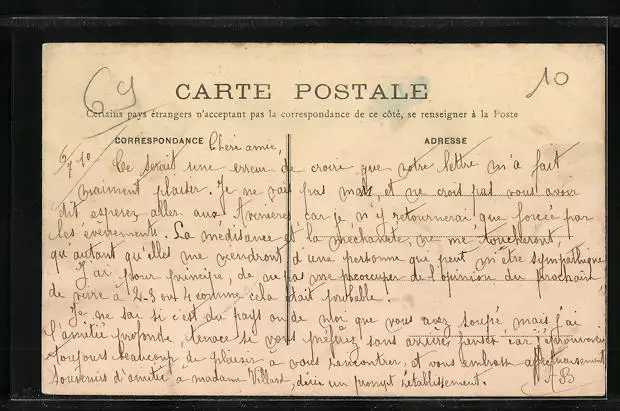 69
10
CARTE POSTALE
Certains pays étrangers n'acceptant pas la correspondance de ce côté, se renseigner à la Poste
CORRESPONDANCE
ADRESSE
Chère amie,
Ce serait une erreur de croire que votre lettre m'a fait
vraiment plaisir. Je ne vais pas mal, et ne crois pas vous avoir
dit espérer aller aux car je n'y retournerai que forcée par
les événements. La médisance et la méchanceté, ne me toucheront,
qu'autant qu'elles me viendront d'une personne qui peut m'être sympathique
J'ai pour principe, de ne pas me préoccuper de l'opinion du prochain,
de vivre à 2-3 ou 4 comme cela était probable.
Je ne sai si c'est du pays ou de moi que vous avez soupé, mais j'ai
l'amitié profonde, tenace si vous préférez, sans arrière penser car
toujours beaucoup de plaisir à vous rencontrer, et vous embrasse affectueusement
Souvenirs d'amitié à madame Villard, désire un prompt rétablissement.